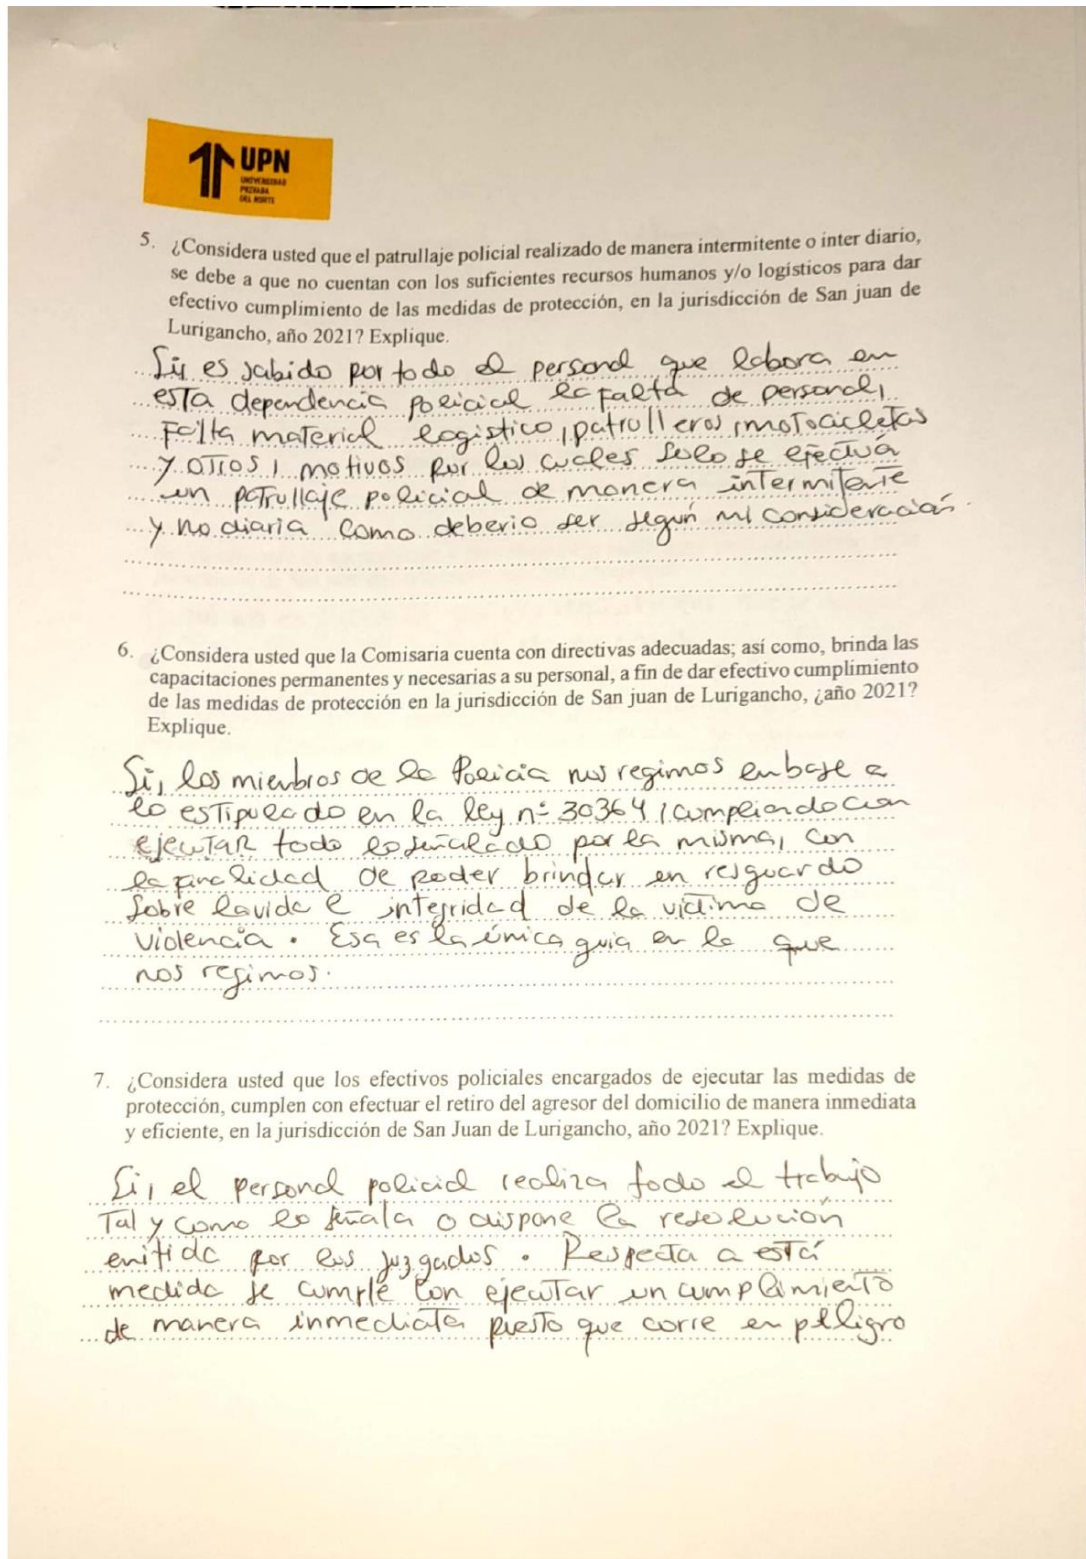 UPN
UNIVERSIDAD
PRIVADA
DEL NORTE
5. ¿Considera usted que el patrullaje policial realizado de manera intermitente o inter diario,
se debe a que no cuentan con los suficientes recursos humanos y/o logísticos para dar
efectivo cumplimiento de las medidas de protección, en la jurisdicción de San juan de
Lurigancho, año 2021? Explique.
Si, es sabido por todo el personal que labora en
esta dependencia policial la falta de personal,
falta material logistico, patrulleros, motocicletas
y otros, motivos por los cuales solo se efectua
un patrullaje policial de manera intermitente
y no diaria como deberia ser según mi consideración.
6. ¿Considera usted que la Comisaria cuenta con directivas adecuadas; así como, brinda las
capacitaciones permanentes y necesarias a su personal, a fin de dar efectivo cumplimiento
de las medidas de protección en la jurisdicción de San juan de Lurigancho, ¿año 2021?
Explique.
Si, los miembros de la Policia nos regimos en base a
lo estipulado en la ley n° 30364, cumpliendo con
ejecutar todo lo señalado por la misma, con
la finalidad de poder brindar un resguardo
sobre la vida e integridad de la victima de
violencia. Esa es la única guia en la que
nos regimos.
7. ¿Considera usted que los efectivos policiales encargados de ejecutar las medidas de
protección, cumplen con efectuar el retiro del agresor del domicilio de manera inmediata
y eficiente, en la jurisdicción de San Juan de Lurigancho, año 2021? Explique.
Si, el personal policial realiza todo el trabajo
tal y como lo señala o dispone la resolución
emitida por los juzgados. Respecta a está
medida se cumple con ejecutar un cumplimiento
de manera inmediata puesto que corre en peligro